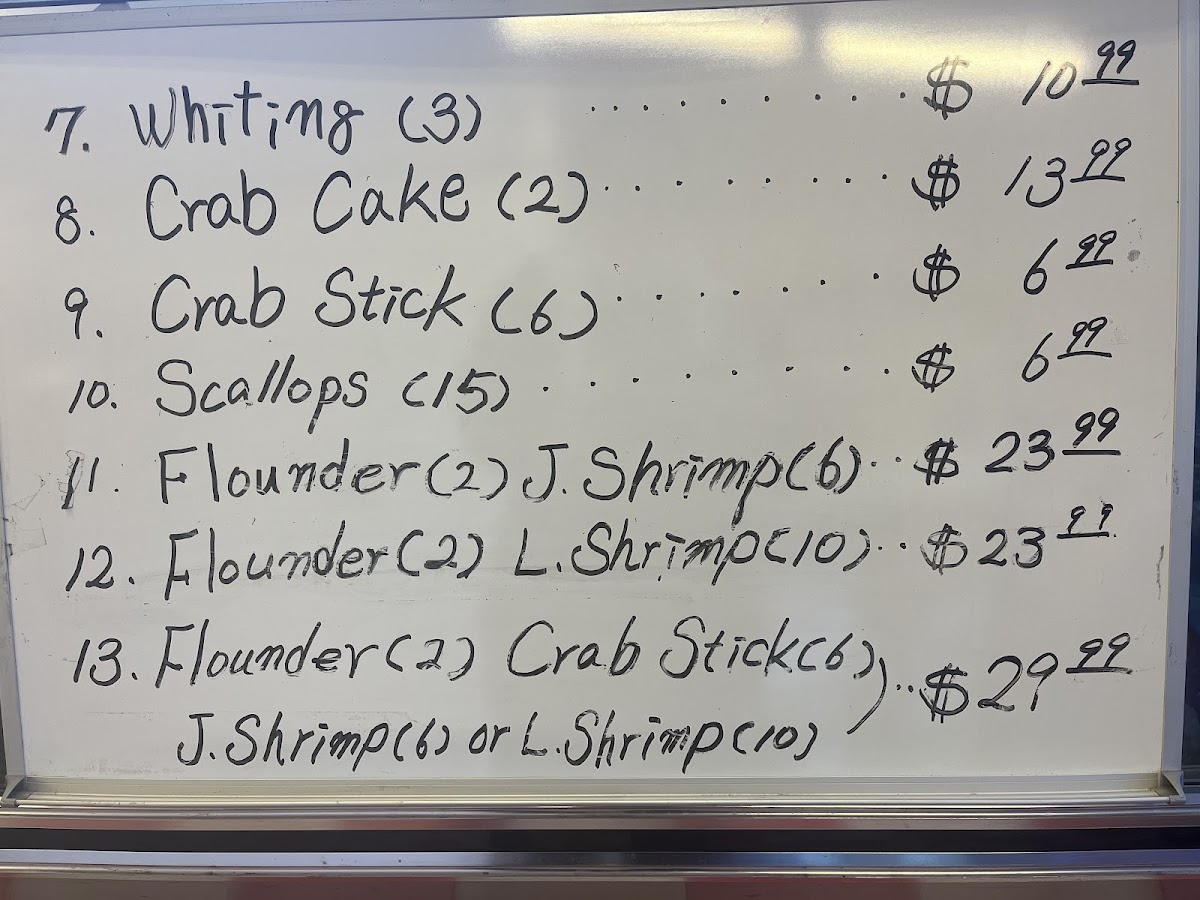 7. Whiting (3) ........ $ 10.99
8. Crab Cake (2) ........ $ 13.99
9. Crab Stick (6) ....... $ 6.99
10. Scallops (15) ........ $ 6.99
11. Flounder (2) J. Shrimp (6) .. $ 23.99
12. Flounder (2) L. Shrimp (10) .. $ 23.99
13. Flounder (2) Crab Stick (6) .. $ 29.99
J. Shrimp (6) or L. Shrimp (10)